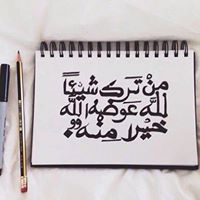 مِنْ تَركَ شيْئاً
للّه عَوضهُ اللّه
خيْرا مِنهُ